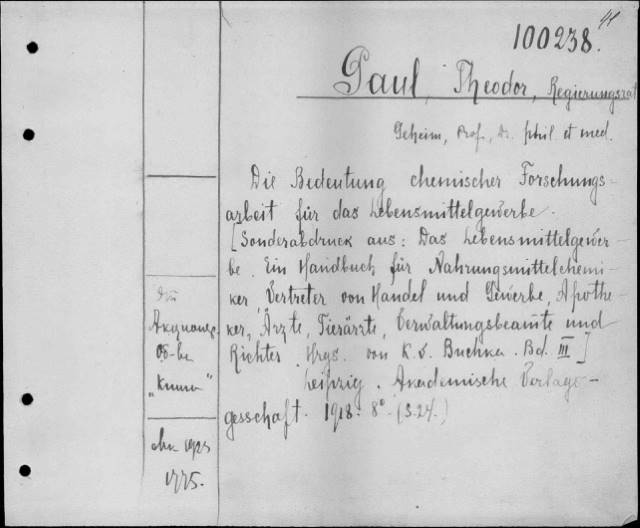 41
100238.
Paul, Theodor, Regierungsrat
Geheim, Prof., Dr. phil et med.
Die Bedeutung chemischer Forschungs-
arbeit für das Lebensmittelgewerbe.
[Sonderabdruck aus: Das Lebensmittelgewer-
be. Ein Handbuch für Nahrungsmittelchemi-
ker, Vertreter von Handel und Gewerbe, Apothe-
ker, Ärzte, Tierärzte, Verwaltungsbeamte und
Richter. Hrgs. von K. v. Buchka. Bd. III]
Leipzig. Akademische Verlags-
gesschaft. 1918. 8° (S.24.)
Акционер.
Об-ва
„Книга"
1925
1775.